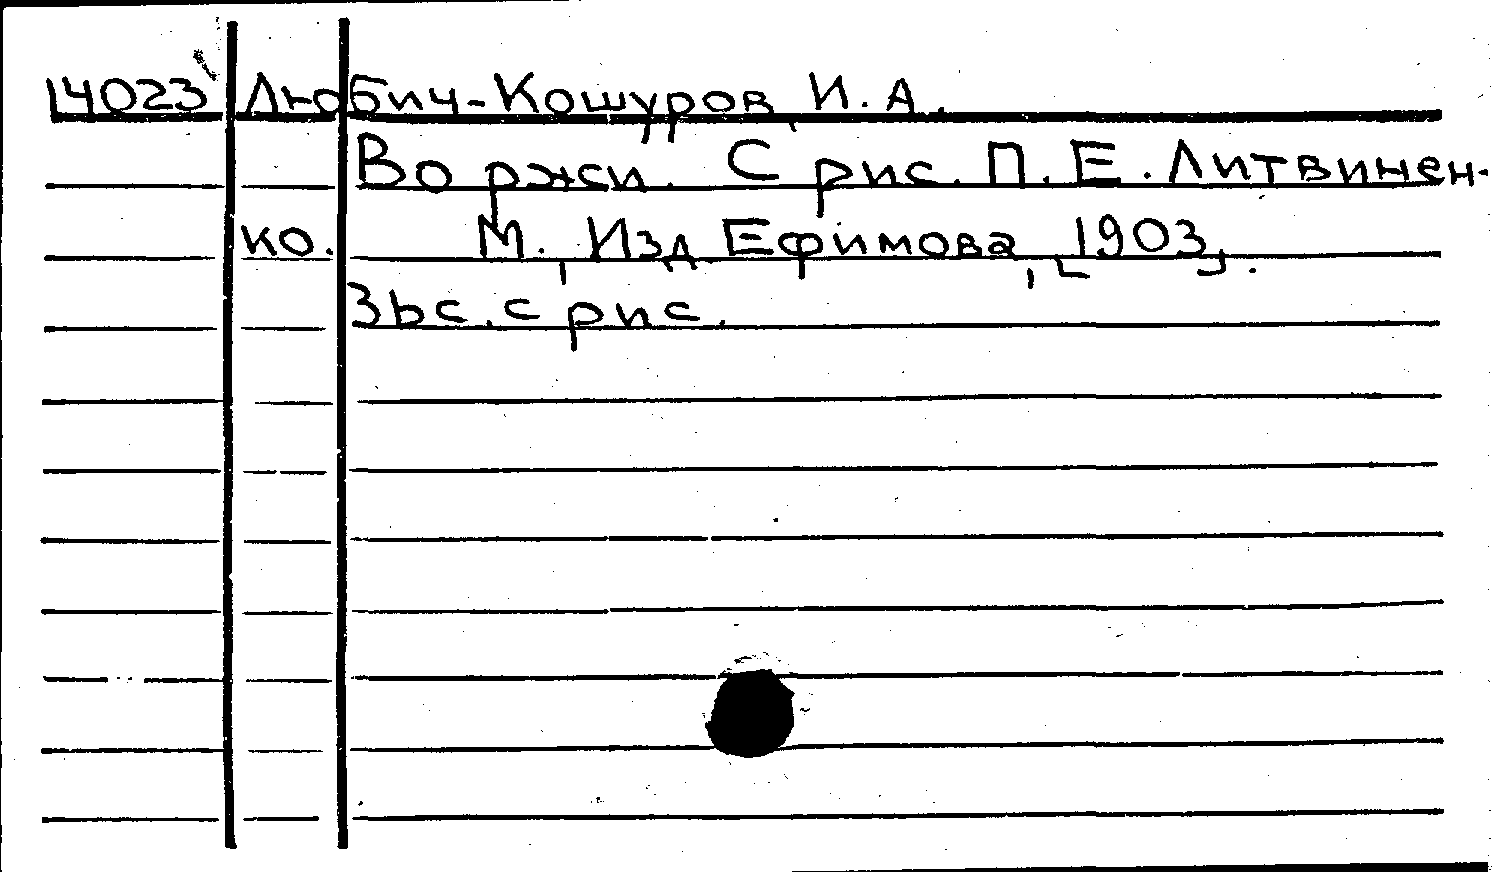 14023 Любич-Кошуров, И. А.
Во ржи. С рис. П. Е. Литвинен-
ко. М., Изд. Ефимова, [1903].
36 с. с рис.